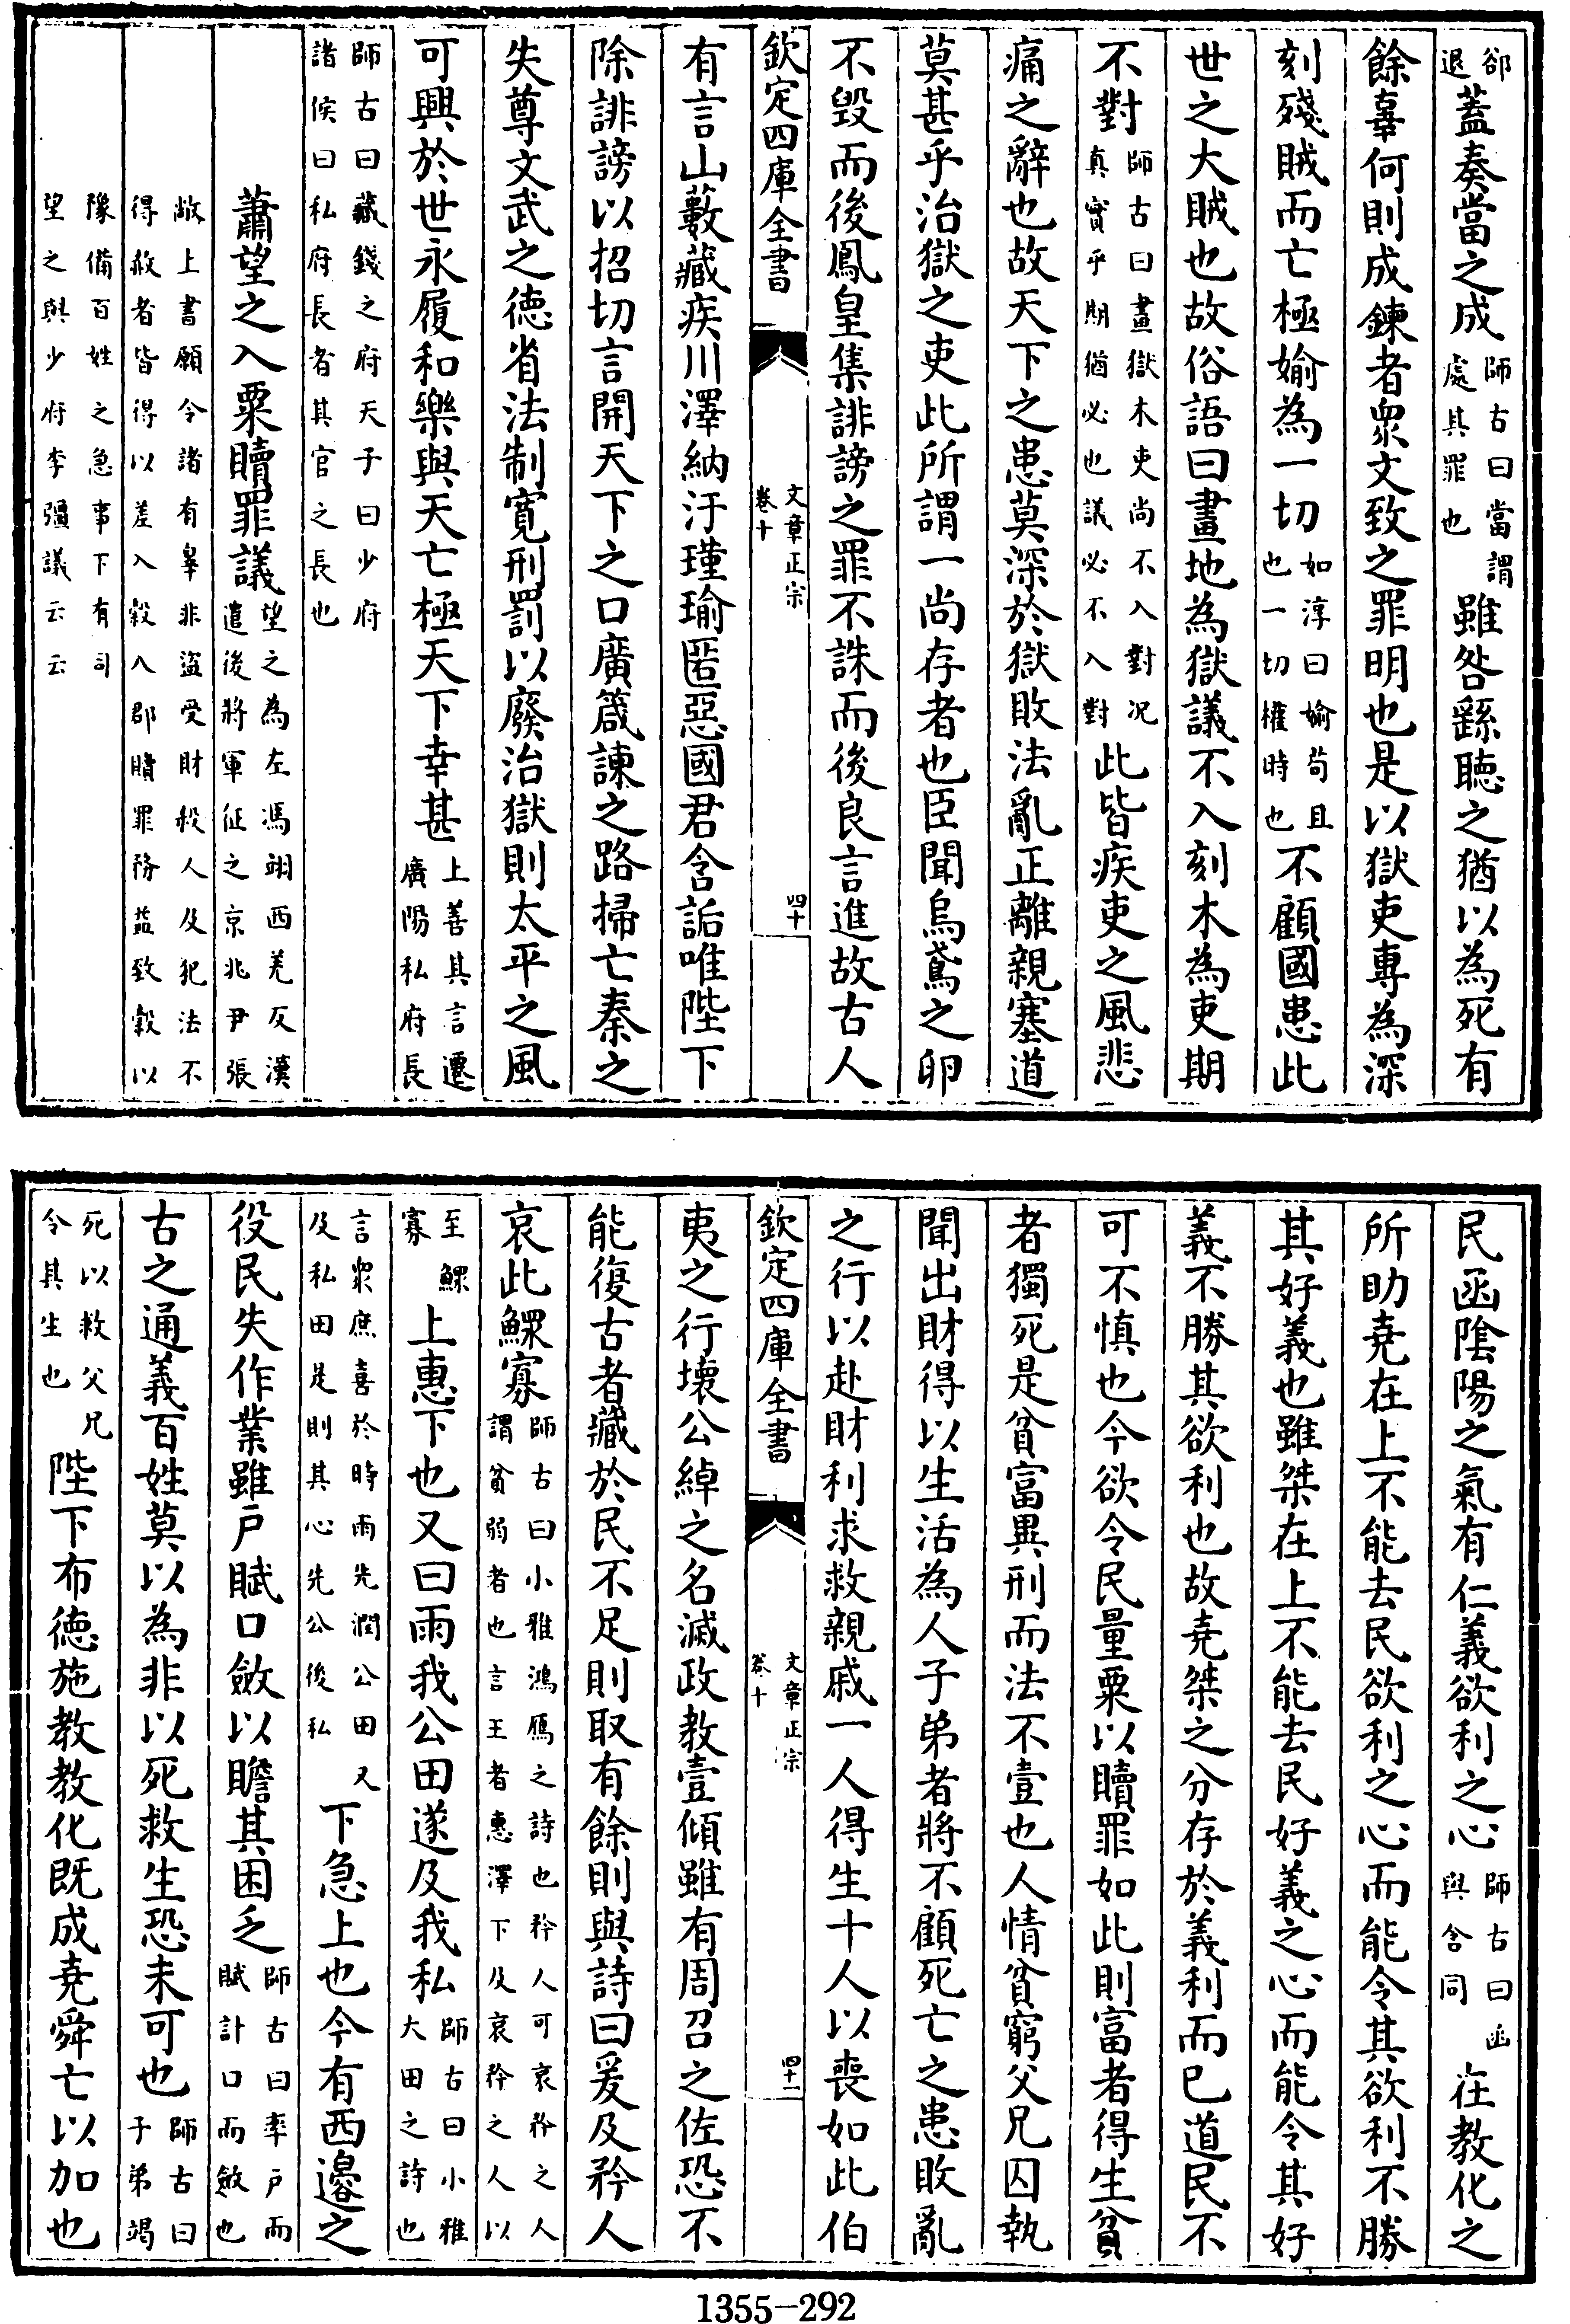 郤退蓋奏當之成師古曰當謂處其罪也雖咎繇聽之猶以為死有
餘辜何則成鍊者衆文致之罪明也是以獄吏專為深
刻殘賊而亡極媮為一切如淳曰媮苟且也一切權時也不顧國患此
世之大賊也故俗語曰畫地為獄議不入刻木為吏期
不對師古曰畫獄木吏尚不入對況真實乎期猶必也議必不入對此皆疾吏之風悲
痛之辭也故天下之患莫深於獄敗法亂正離親塞道
莫甚乎治獄之吏此所謂一尚存者也臣聞烏鳶之卵
不毀而後鳳皇集誹謗之罪不誅而後良言進故古人
欽定四庫全書 文章正宗 卷十 四十
有言山藪藏疾川澤納汙瑾瑜匿惡國君含詬唯陛下
除誹謗以招切言開天下之口廣箴諫之路掃亡秦之
失尊文武之徳省法制寛刑罰以廢治獄則太平之風
可興於世永履和樂與天亡極天下幸甚上善其言遷廣陽私府長
師古曰藏錢之府天子曰少府諸侯曰私府長者其官之長也
蕭望之入粟贖罪議望之為左馮翊西羌反漢遣後將軍征之京兆尹張
敞上書願令諸有辠非盜受財殺人及犯法不得赦者皆得以差入穀八郡贖罪務益致穀以
豫備百姓之急事下有司望之與少府李彊議云云
民函隂陽之氣有仁義欲利之心師古曰函與含同在教化之
所助尭在上不能去民欲利之心而能令其欲利不勝
其好義也雖桀在上不能去民好義之心而能令其好
義不勝其欲利也故尭桀之分存於義利而已道民不
可不慎也今欲令民量粟以贖罪如此則富者得生貧
者獨死是貧富異刑而法不壹也人情貧窮父兄囚執
聞出財得以生活為人子弟者將不顧死亡之患敗亂
之行以赴財利求救親戚一人得生十人以喪如此伯
欽定四庫全書 文章正宗 卷十 四十一
夷之行壊公綽之名滅政教壹傾雖有周召之佐恐不
能復古者藏於民不足則取有餘則與詩曰爰及矜人
哀此鰥寡師古曰小雅鴻鴈之詩也矜人可哀矜之人謂貧弱者也言王者惠澤下及哀矜之人以
至鰥寡上惠下也又曰雨我公田遂及我私師古曰小雅大田之詩也
言衆庶喜於時雨先潤公田又及私田是則其心先公後私下急上也今有西邉之
役民失作業雖戶賦口斂以贍其困乏師古曰率戶而賦計口而斂也
古之通義百姓莫以為非以死救生恐未可也師古曰子弟竭
死以救父兄令其生也陛下布徳施教教化既成尭舜亡以加也
1355-292